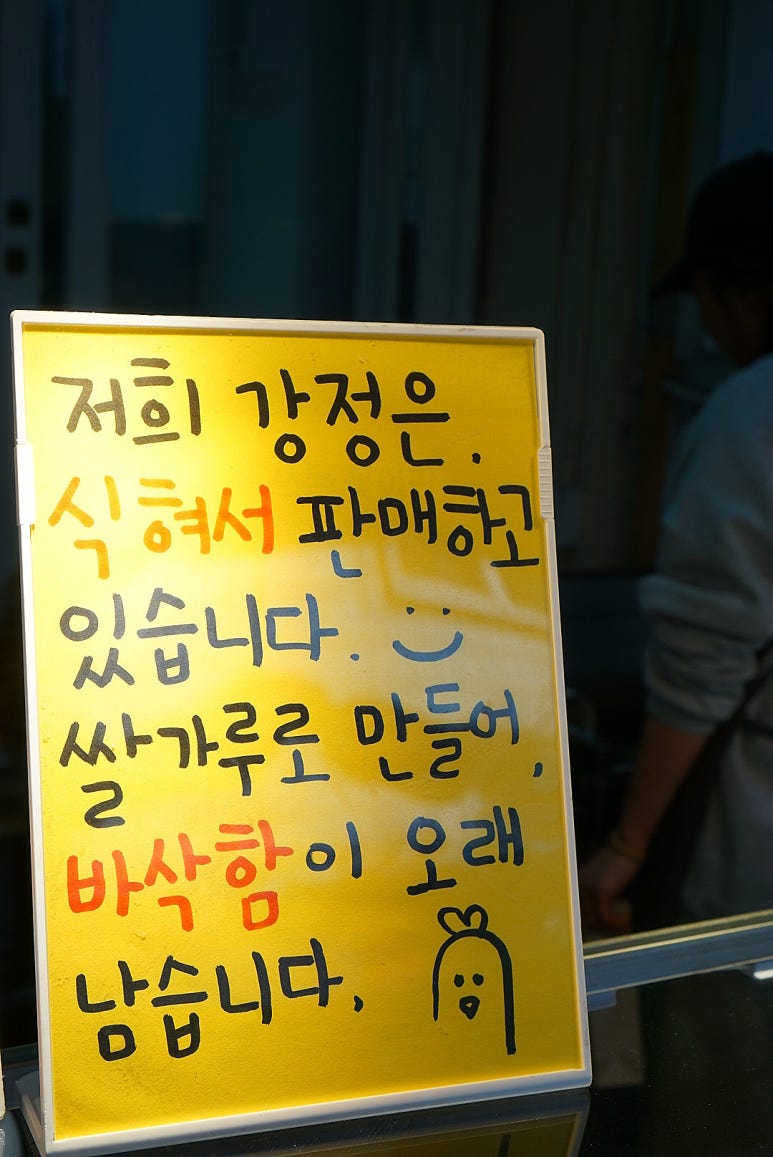 저희 강정은.
식혀서 판매하고
있습니다.
쌀가루로 만들어,
바삭함이 오래
남습니다,